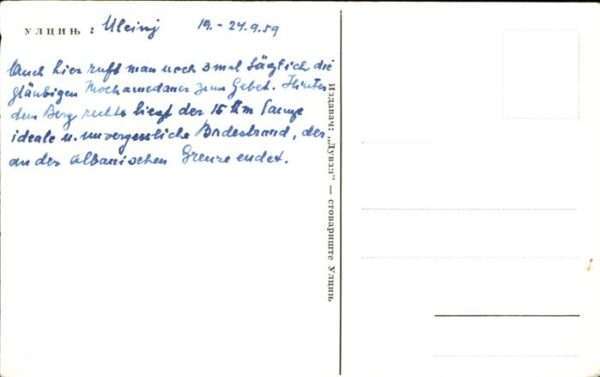 УЛЦИЊ : Ulcinj 19.-24.9.59
Auch hier ruft man noch 3 mal täglich die
gläubigen Mochamedaner zum Gebet. Hinter
dem Berg rechts liegt der 15 Km lange
ideale u. unvergessliche Badestrand, der
an der Albanischen Grenze endet.
Издавач: „Дувал" — стовариште Улцињ